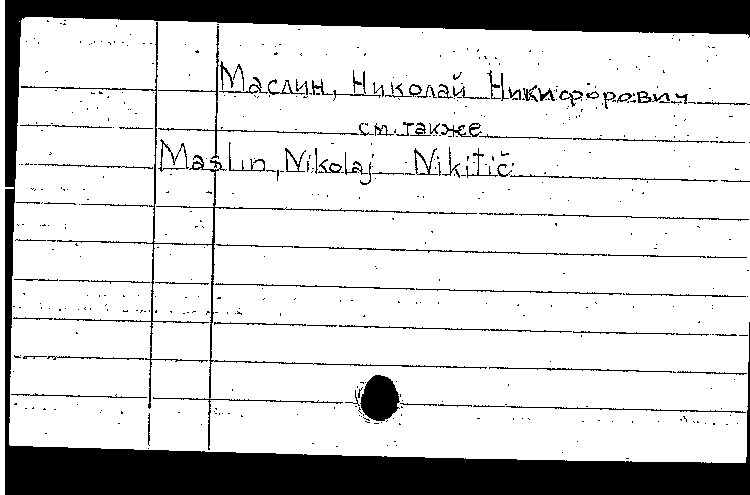 Маслин, Николай Никифорович
см. также
Maslin, Nikolaj Nikitič